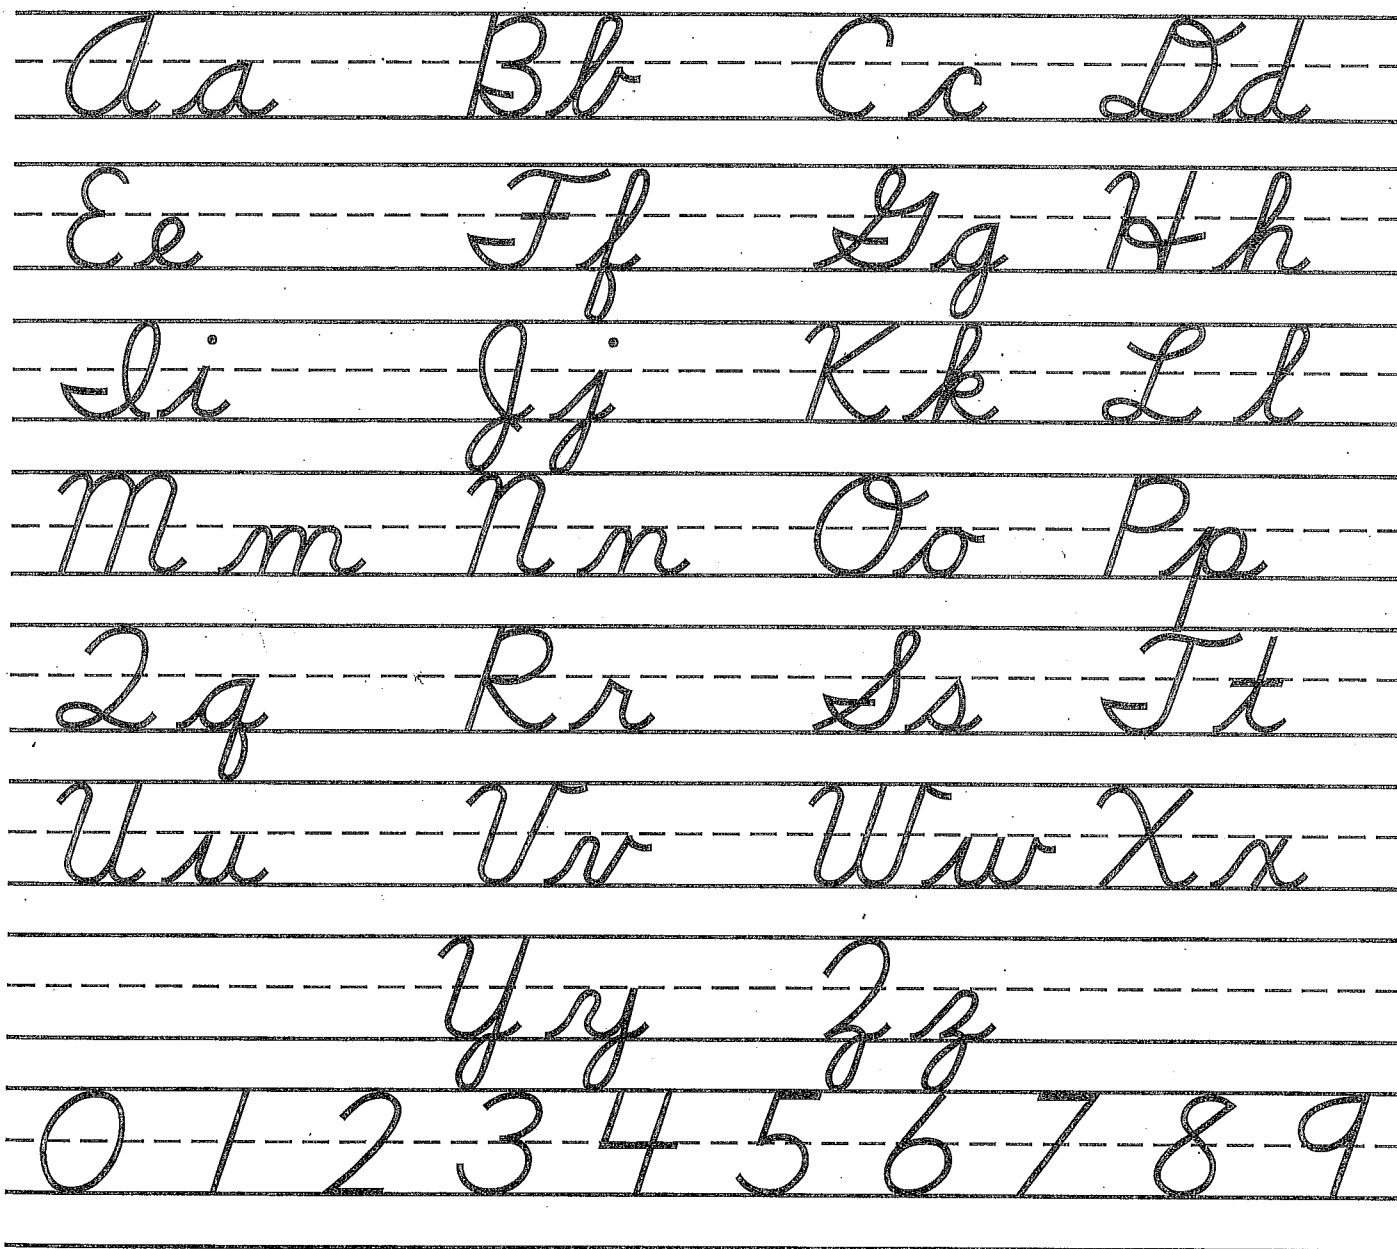 Aa Bb Cc Dd
Ee Ff Gg Hh
Ii Jj Kk Ll
Mm Nn Oo Pp
Qq Rr Ss Tt
Uu Vv Ww Xx
Yy Zz
0 1 2 3 4 5 6 7 8 9